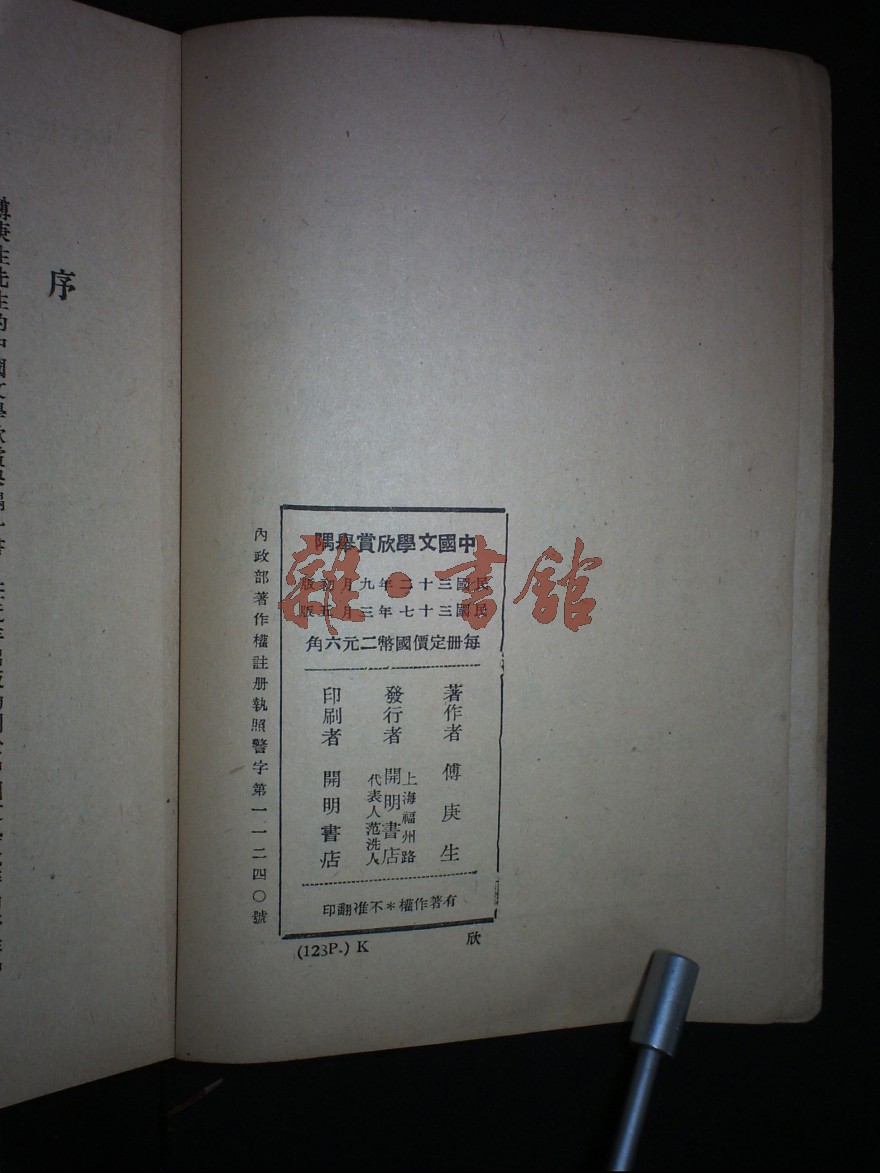 中國文學欣賞舉隅
民國三十二年九月初版
民國三十七年三月五版
每冊定價國幣二元六角
著作者 傅庚生
發行者 上海福州路 開明書店 代表人范洗人
印刷者 開明書店
有著作權*不准翻印
內政部著作權註册執照警字第一一二四〇號
(123P.) K 欣
雜·書舘
序
傅庚生先生的中國文學欣賞舉隅一書